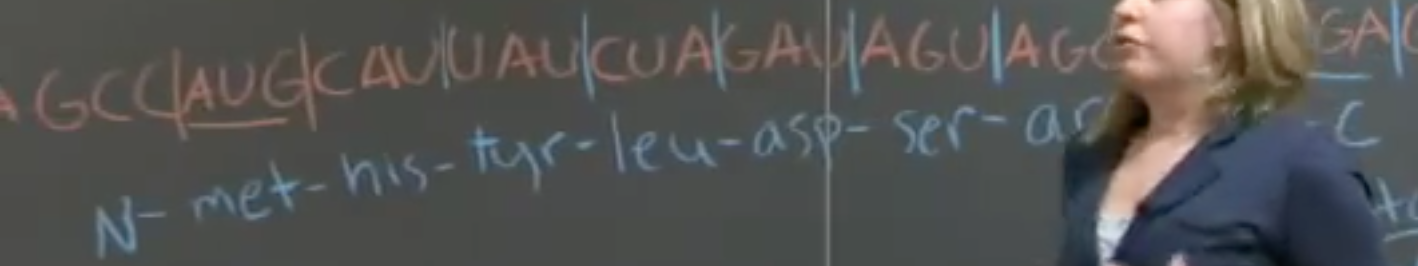 A GCC|AUG|CAU|UAU|CUA|GAU|AGU|AG GA|
N- met- his- tyr- leu- asp- ser- ar - C